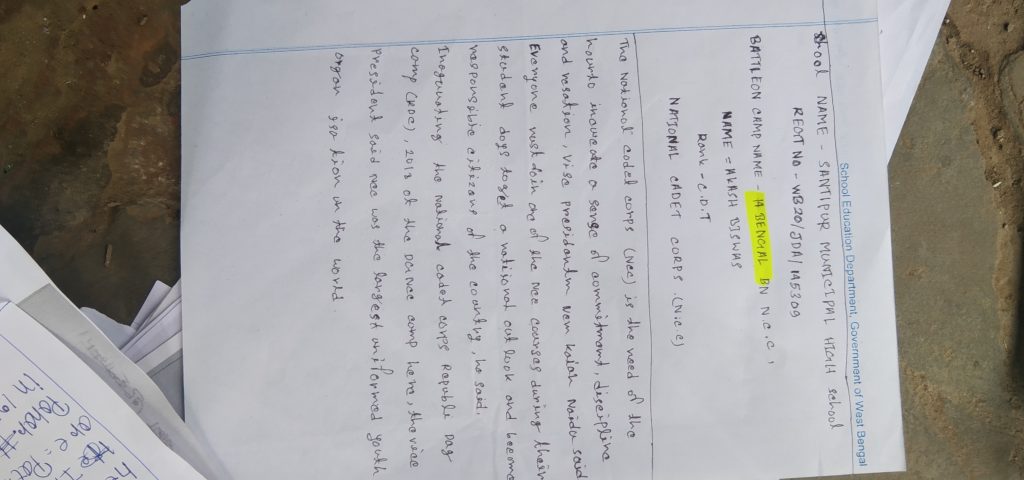 School Education Department, Government of West Bengal
School NAME - SANTIPUR MUNICIPAL HIGH School
REGT NO - WB20/JDA/145309
BATTLEON CAMP NAME - 14 BENGAL BN N.C.C,
NAME = AKASH BISWAS
Rank - C.D.T
NATIONAL CADET CORPS (N.C.C)
The National cadet corps (Ncc) is the need of the
hourto incucate a sense of commitment, discipline
and vesation, vise presidentn Vem kaiah Naidu said
Everyone mustdoin one of the Ncc courses during their
student days toget a national out look and become
responsible citizens of the country, he said.
Inogurating the National cadet corps Republic Day
comp (RDC), 2018 at the DGNCC camp here, the vice
president said Ncc was the largest uniformed youth
organ isa tion in the world.